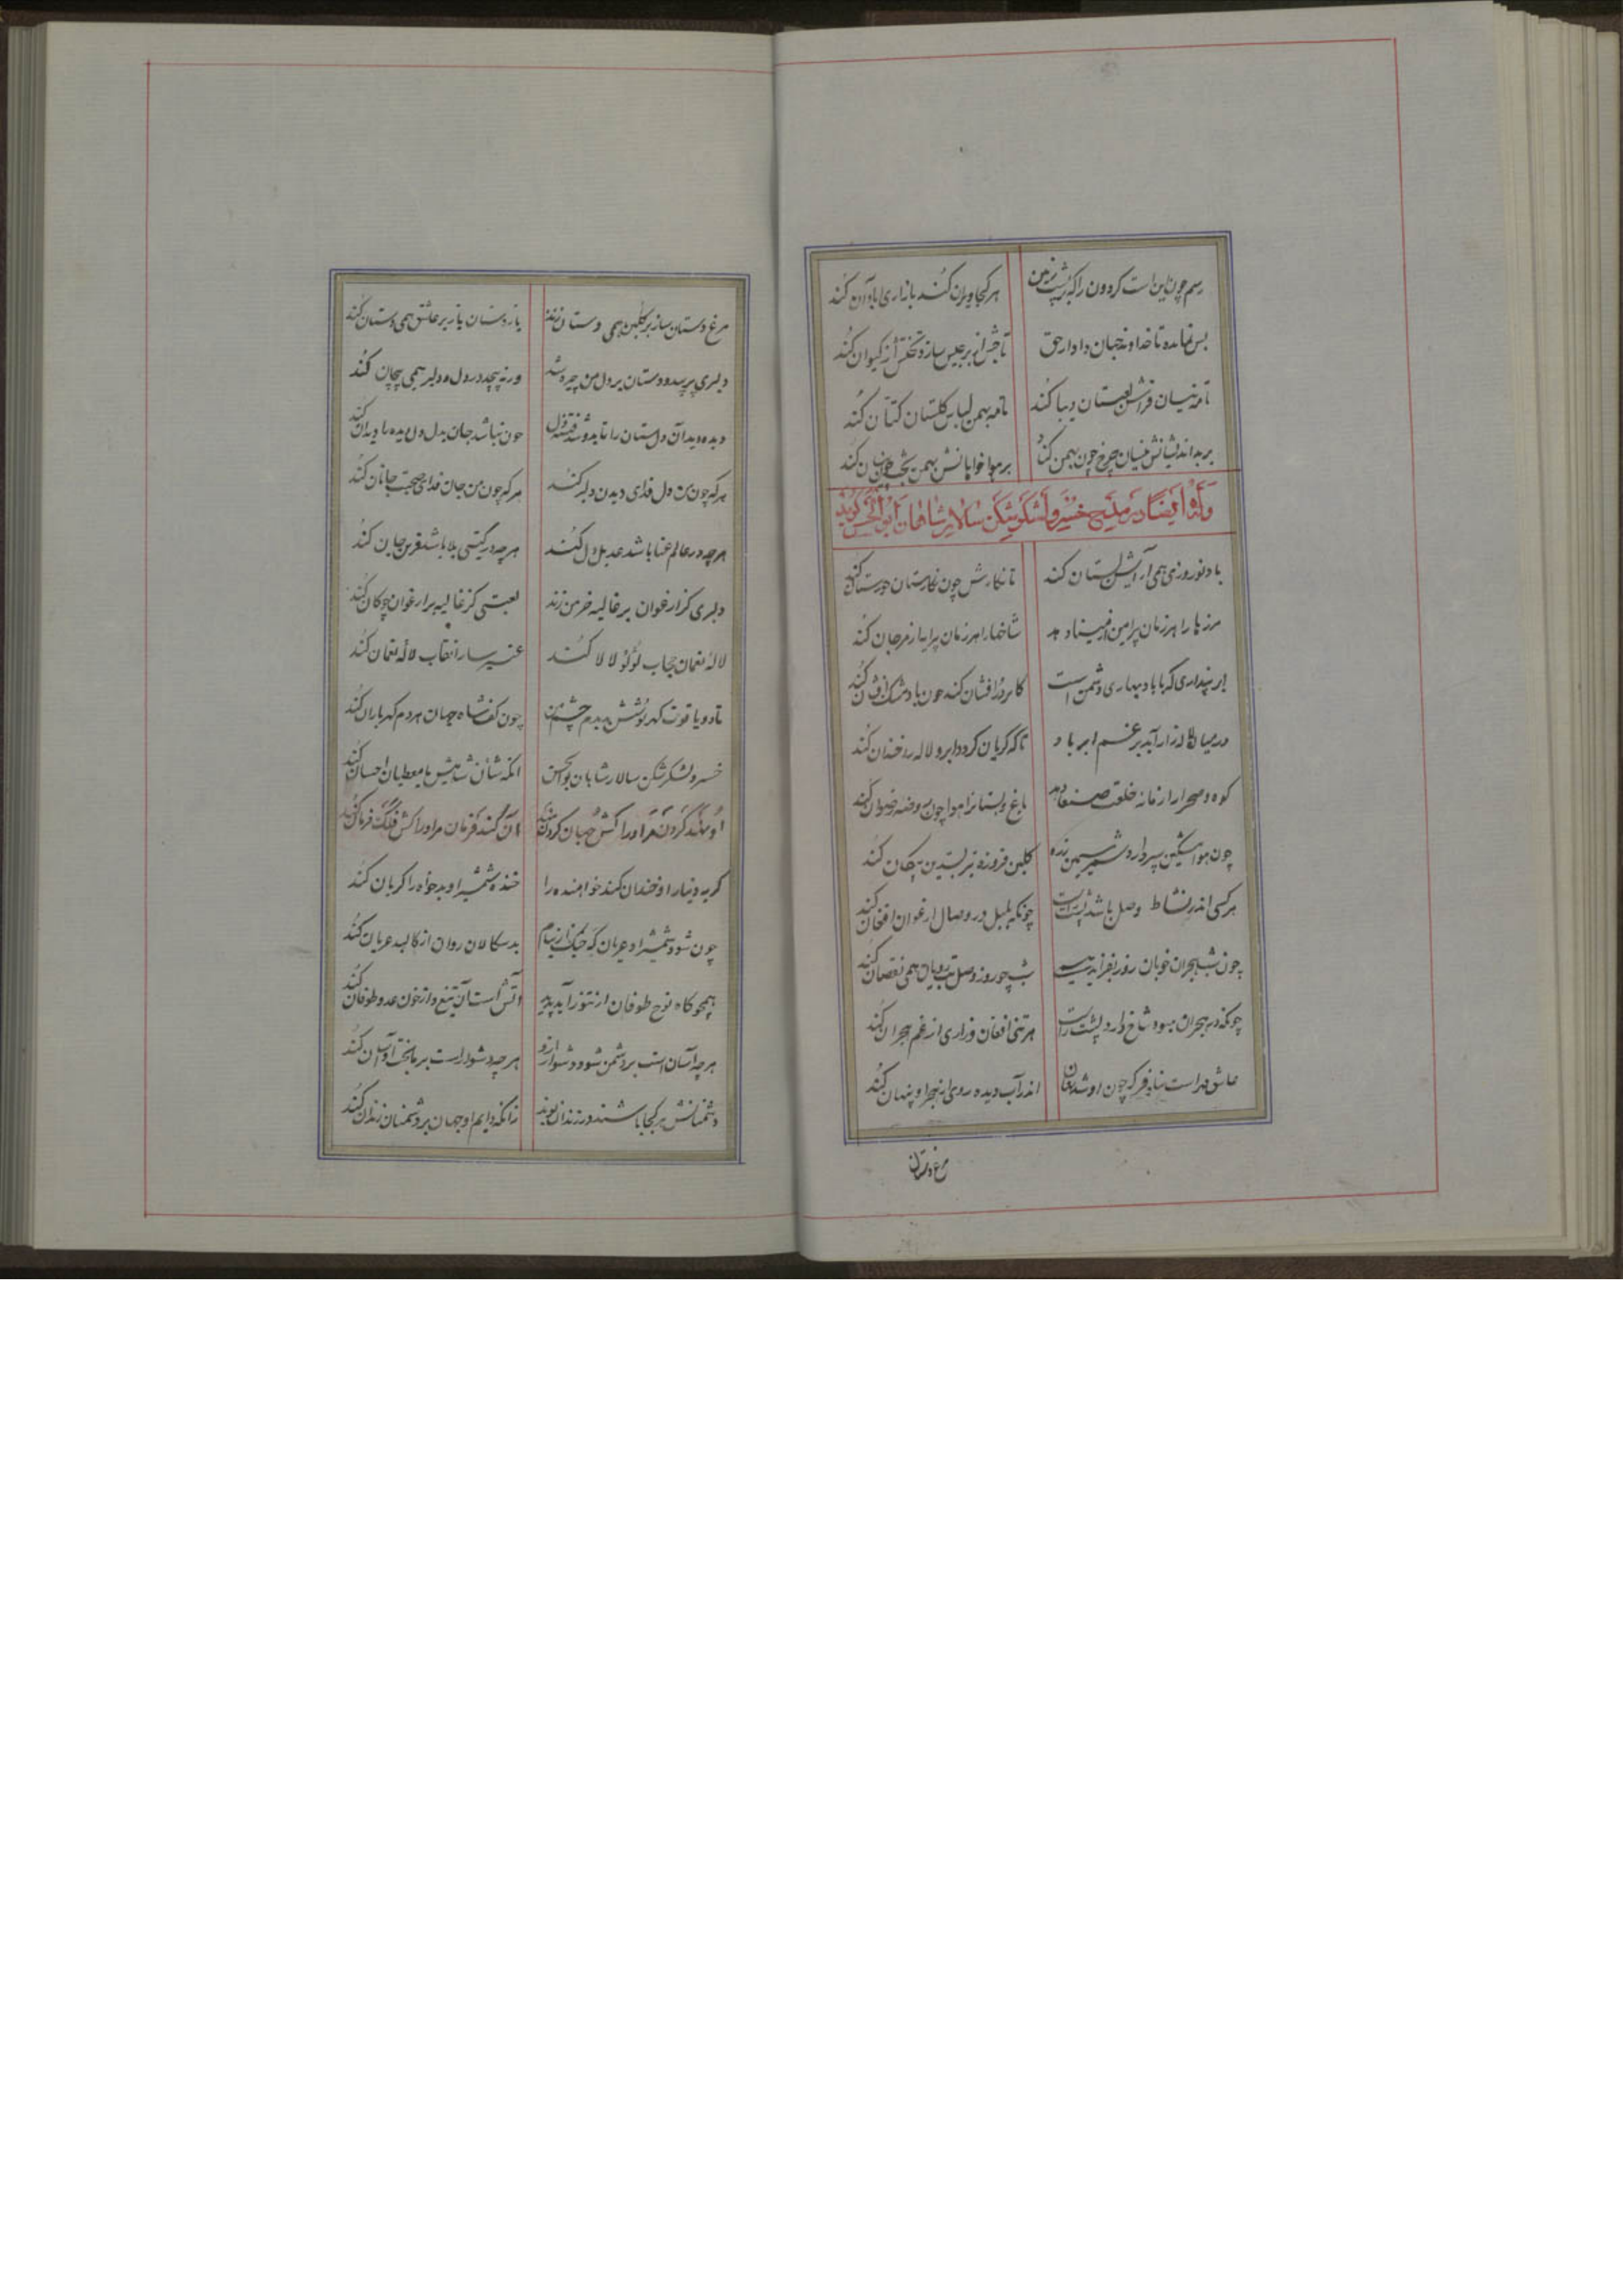 رسم چون این است کردون را که بر پشت زمین هر کجا ویران کند بازاری آبادان کند
بس نمانده تا خداوند جهان دادار حق تاجش از برجیس سازد تختش از کیوان کند
تامه نیسان فراش لعبستان دیبا کند تامه بهمن لباس گلستان کتان کند
بر بداندیشانش نیسان چرخ چون بهمن کند بر هوا خواهانش بهمن بخت چون نیسان کند
وله ایضا در مدیح خسرو لشکر شکن سالار شاهان ابوالحسن گوید
باد نوروزی همی آرایش بستان کند تا نگارش چون نگارستان چینستان کند
مرزها را هر زمان پیرامن از مینا دهد شاخها را هر زمان پیرایه از مرجان کند
ابر پنداری که با باد بهاری دشمن است کابر در افشان کند چون باد مشک افشان کند
در میان لاله زار آید بر غم ابر باد تا که گریان گردد ابر و لاله را خندان کند
کوه و صحرا را زمانه خلعت صنعا دهد باغ و بستان را هوا چون روضه رضوان کند
چون هوا مشکین سپر دارد شمر سیمین زره گلبن فروزه تیر بسدین پیکان کند
هر کسی اندر نشاط وصل باشد پس چراست چونکه بلبل در وصال ارغوان افغان کند
چون شب هجران خوبان روز بفزاید همی شب چو روز وصل بت رویان همی نقصان کند
چونکه در هجران میوه شاخ دارد پشت راست هر تنی افغان و زاری از غم هجران کند
عاشق مهر است نیلوفر که چون او شد نهان اندر آب دیده روی از هجر او پنهان کند
مرغ دستان
مرغ دستان ساز بر گلبن همی دستان زند یار دستان یار بر عاشق همی دستان کند
دلبری پر پند و دستان بر دل من چیره شد ور نه پیچد در دل و دلبر همی پیچان کند
دیده دید آن دلستان را تا بدو شد فتنه دل چون نباشد جان بدل دل دیده با دیدان کند
هر که چون من دل فدای دیدن دلبر کند هر که چون من جان فدای صحبت جانان کند
هر چه در عالم عنا باشد عدیل دل کند هر چه در گیتی بلا باشد قرین جان کند
دلبری کز ارغوان بر غالیه خرمن زند لعبتی کز غالیه بر ارغوان چوگان کند
لاله نعمان حجاب لؤلؤ لالا کند عنبر سارا نقاب لاله نعمان کند
تا دو یاقوت گهر پوشش بدیدم چشم من چون کف شاه جهان هر دم گهر باران کند
خسرو لشکر شکن سالار شاهان بوالحسن آنکه شأن شاهیش با معطیان احسان کند
او نهد گردن مر او را کش جهان گردن نهد آن کند فرمان مر او را کش فلک فرمان کند
گریه دینار او خندان کند خواهنده را خنده شمشیر او بدخواه را گریان کند
چون شود شمشیر او عریان گه جنگ از نیام بد سگالان را روان از کالبد عریان کند
همچو گاه نوح طوفان از تنور آید پدید آتش است آن تیغ و از خون عدو طوفان کند
هر چه آسان است بر دشمن شود دشوار ازو هر چه دشوار است بر ما بخت او آسان کند
دشمنانش هر کجا باشند در زندان بوند زانکه دایم او جهان بر دشمنان زندان کند